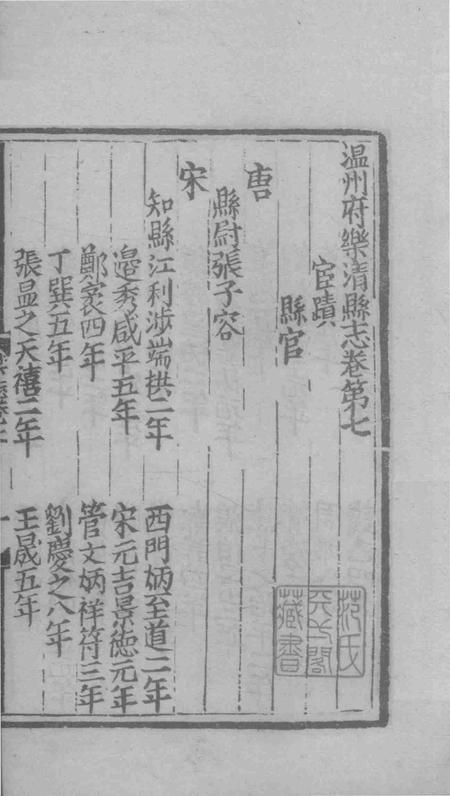 温州府樂清縣志卷第七
宦蹟
縣官
唐
縣尉張子容
宋
知縣江利涉端拱二年
西門炳至道二年
邉秀咸平五年
宋元吉景德元年
鄭褒四年
管文炳祥符三年
丁巽五年
劉慶之八年
張显之天禧二年
王晟五年
范氏
天一閣
藏書